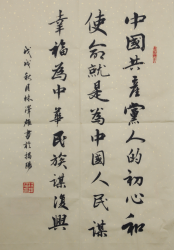 中國共產黨人的初心和
使命就是為中國人民謀
幸福為中華民族謀復興
戊戌秋月林澤雄書於揭陽